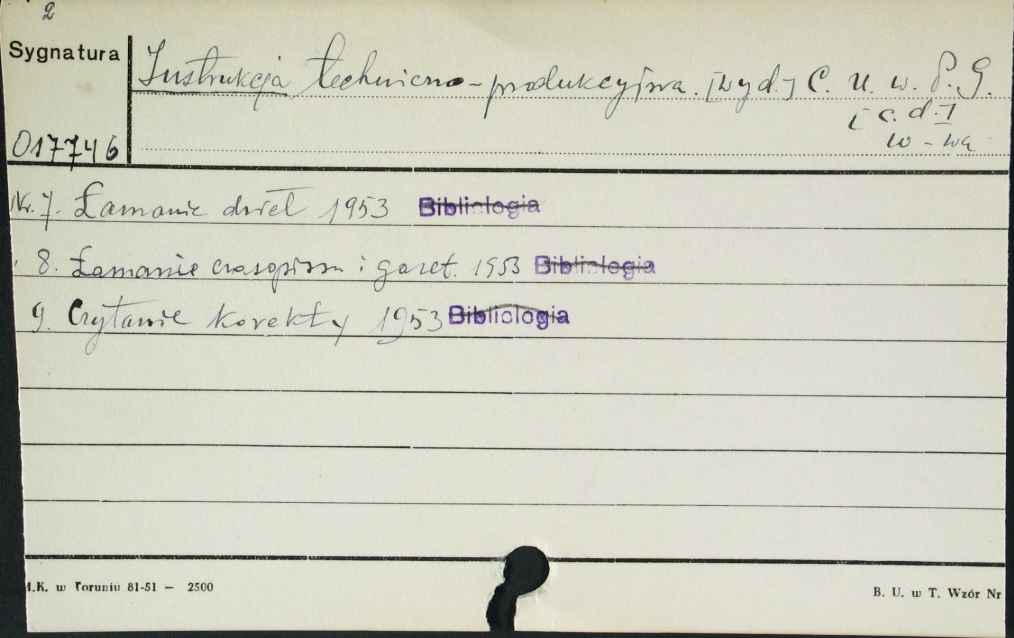 2
Sygnatura
Instrukcja techniczno-produkcyjna. [wyd.] C. U. w. P. G.
[c. d.]
017746
W-wa
Nr. 7. Łamanie dzieł 1953 Bibliologia
8. Łamanie czasopism i gazet. 1953 Bibliologia
9. Czytanie korekty 1953 Bibliologia
.K. w Toruniu 81-51 — 2500
B. U. w T. Wzór Nr